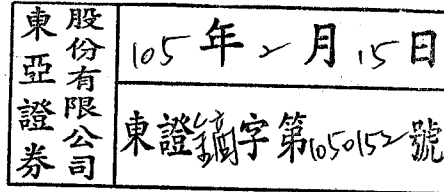 東亞證券
股份有限公司
105年2月15日
東證字第1050152號